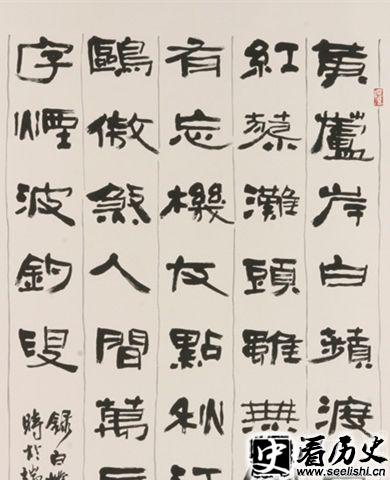 黄蘆岸白蘋渡
紅蓼灘頭雖無
有忘機友點秋江
鷗傲煞人間萬
字煙波釣叟
錄白
時於
史 看历史
www.seelishi.cn